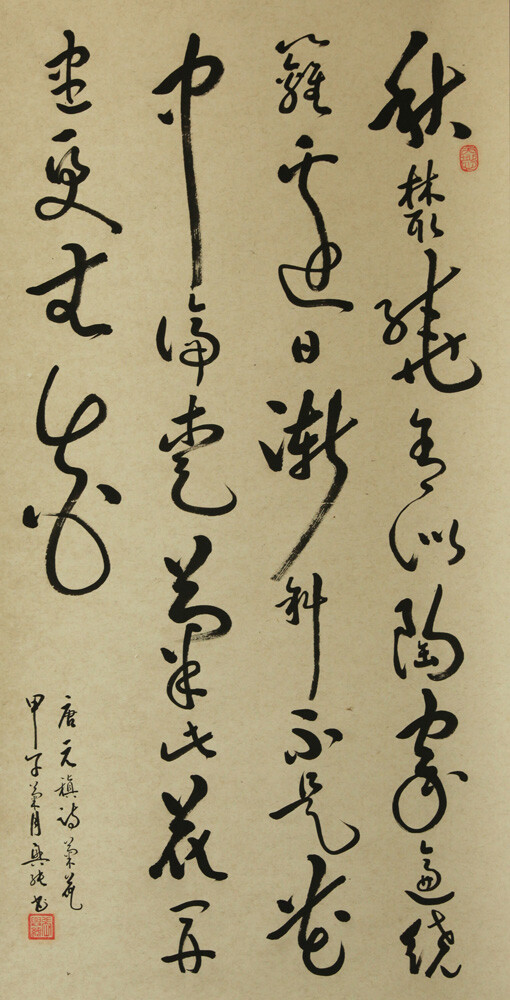 秋叢繞舍似陶家遍繞
籬邊日漸斜不是花
中偏愛菊此花開
盡更无花
唐元稹詩菊花
甲子菊月興書